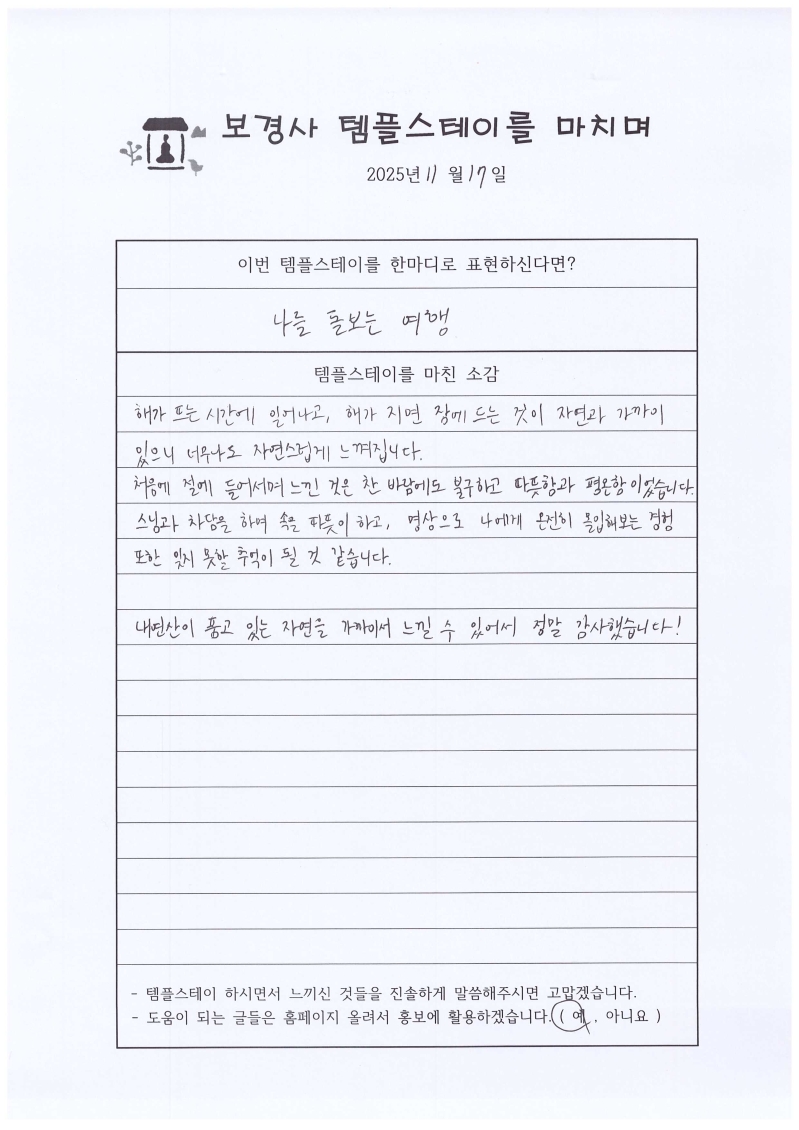 보경사 템플스테이를 마치며
2025년 11 월 17 일
이번 템플스테이를 한마디로 표현하신다면?
나를 돌보는 여행
템플스테이를 마친 소감
해가 뜨는 시간에 일어나고, 해가 지면 잠에 드는 것이 자연과 가까이
있으니 너무나도 자연스럽게 느껴집니다.
처음에 절에 들어서며 느낀 것은 찬 바람에도 불구하고 따뜻함과 평온함이었습니다.
스님과 차담을 하며 속을 따뜻이 하고, 명상으로 나에게 온전히 몰입해보는 경험
또한 잊지 못할 추억이 될 것 같습니다.
내연산이 품고 있는 자연을 가까이서 느낄 수 있어서 정말 감사했습니다!
- 템플스테이 하시면서 느끼신 것들을 진솔하게 말씀해주시면 고맙겠습니다.
- 도움이 되는 글들은 홈페이지 올려서 홍보에 활용하겠습니다. ( 예 , 아니요 )